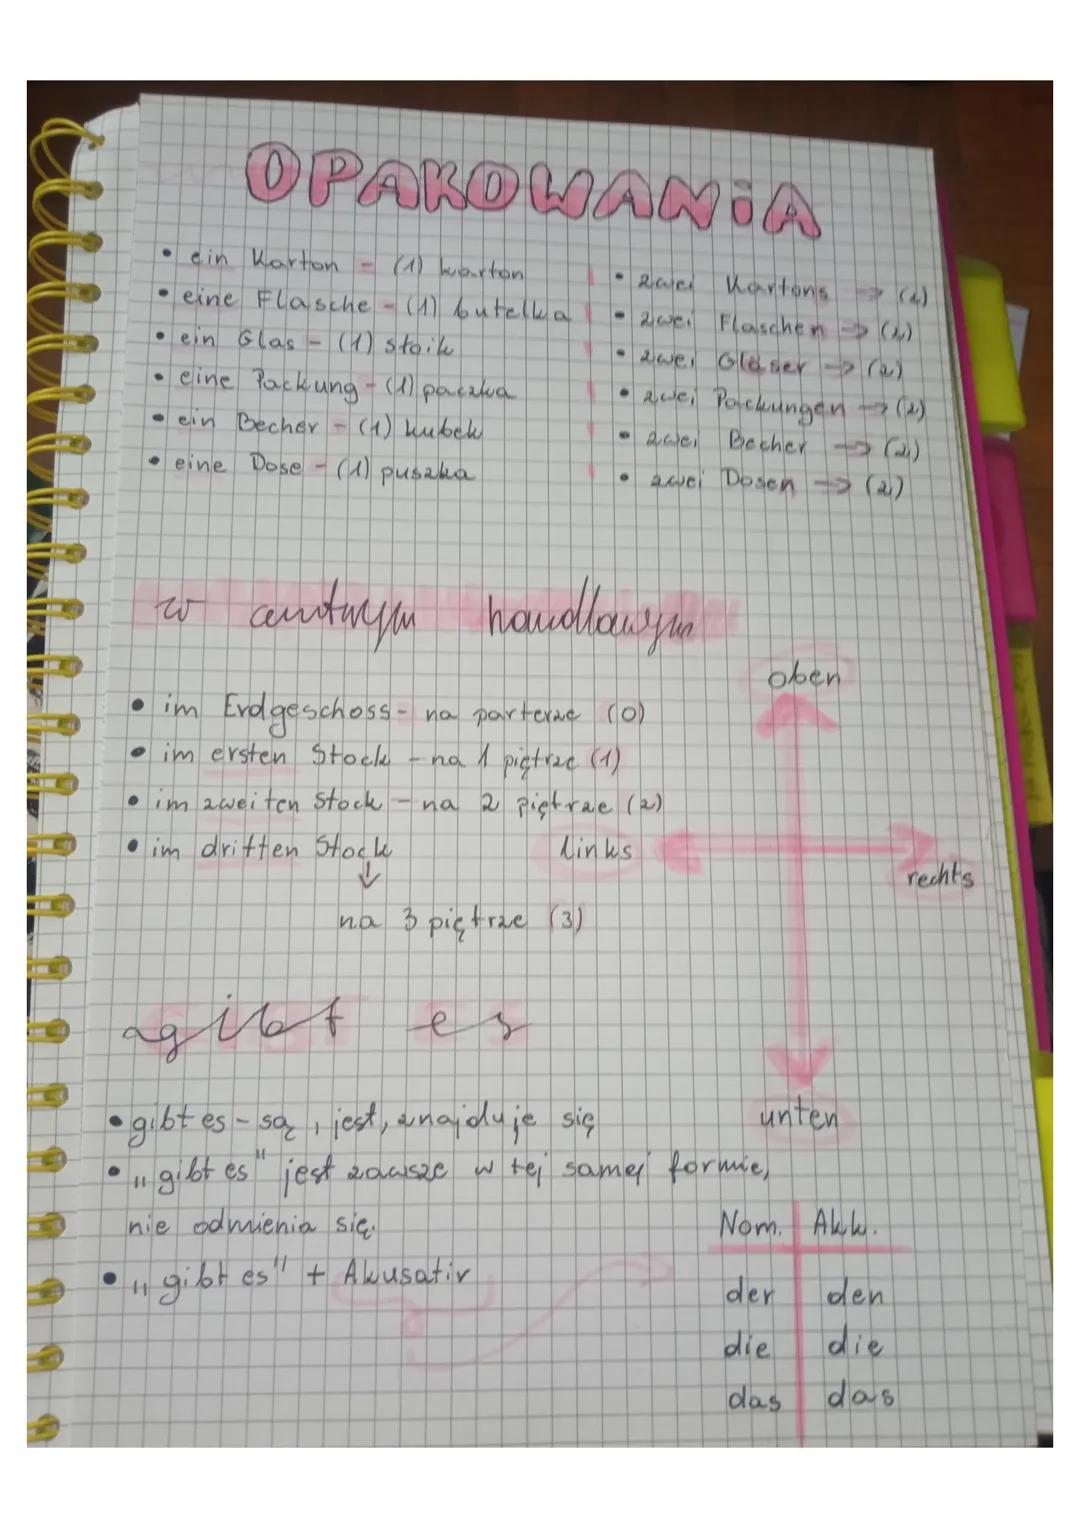 OPAKOWANiA
• ein Karton - (1) karton
• eine Flasche - (1) butelka
• ein Glas - (1) słoik
• eine Packung - (1) paczka
• ein Becher - (1) kubek
• eine Dose - (1) puszka
• zwei Kartons → (2)
• zwei Flaschen → (2)
• zwei Gläser → (2)
• zwei Packungen → (2)
• zwei Becher → (2)
• zwei Dosen → (2)
w centrum handlowym
• im Erdgeschoss - na parterze (0)
• im ersten Stock - na 1 piętrze (1)
• im zweiten Stock - na 2 piętrze (2)
• im dritten Stock
↓
na 3 piętrze (3)
oben
links
rechts
unten
gibt es
• gibt es - są, jest, znajduje się
• „gibt es" jest zawsze w tej samej formie,
nie odmienia się.
• „gibt es" + Akusativ
Nom. Akk.
der den
die die
das das